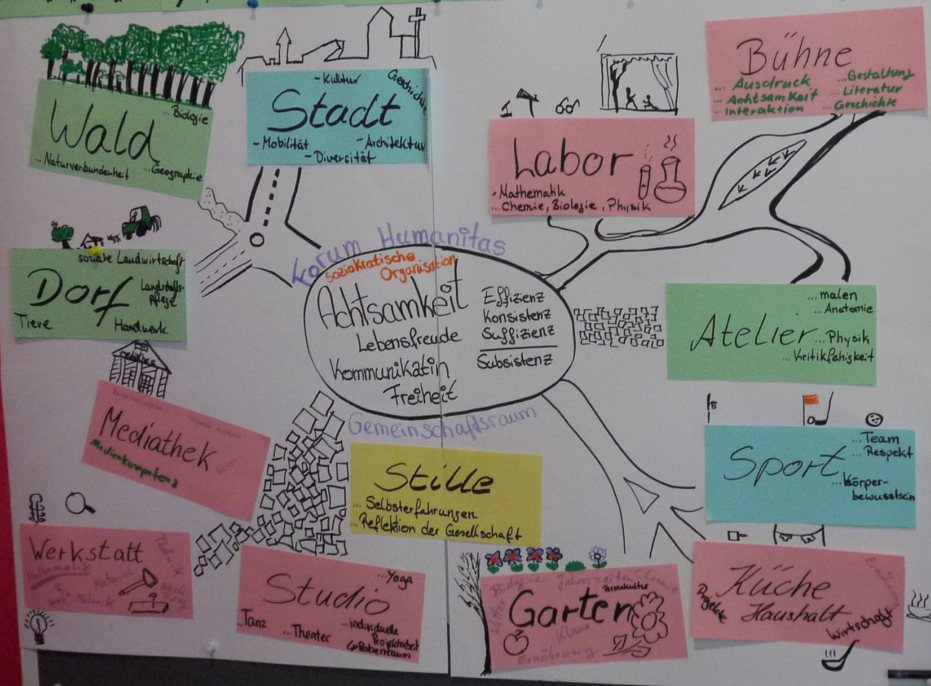 Wald
... Biologie
... Naturverbundenheit
... Geographie
Stadt
- Kultur
Geschichte
- Mobilität
- Architektur
- Diversität
Labor
- Mathematik
... Chemie, Biologie, Physik
Bühne
... Ausdruck
... Achtsamkeit
... Interaktion
... Gestaltung
... Literatur
Geschichte
Dorf
soziale Landwirtschaft
Landschafts-
pflege
Tiere
Handwerk
Forum Humanitas
soziokratische
Organisation
Achtsamkeit
Lebensfreude
Kommunikatin
Freiheit
Effizienz
Konsistenz
Suffizienz
Subsistenz
Gemeinschaftsraum
Atelier
... malen
... Anatomie
... Physik
... Kritikfehigkeit
Mediathek
Medienkompetenz
Stille
... Selbsterfahrungen
... Reflektion der Gesellschaft
Sport
... Team
... Respekt
... Körper-
bewusstsein
Werkstatt
Mathematik
Studio
... Yoga
... Tanz
... Theater
... individuelle
Projektarbeit
Garten
Biologie Jahreszeiten Chemie
Klima
Ernährung
Küche
Haushalt
Projekte
Wirtschaft
Ernährung